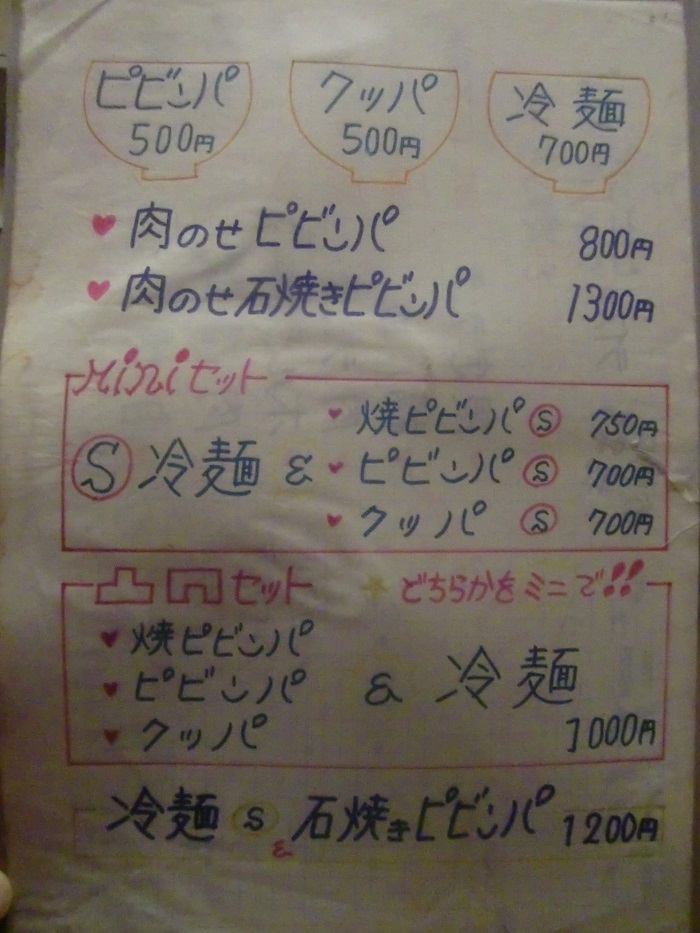 ピビンパ クッパ 冷麺
500円 500円 700円
肉のせピビンパ 800円
肉のせ石焼きピビンパ 1300円
Miniセット
焼ピビンパ S 750円
S 冷麺 & ピビンパ S 700円
クッパ S 700円
凸凹セット どちらかをミニで!!
焼ピビンパ
ピビンパ & 冷麺
クッパ 1000円
冷麺 S & 石焼きピビンパ 1200円